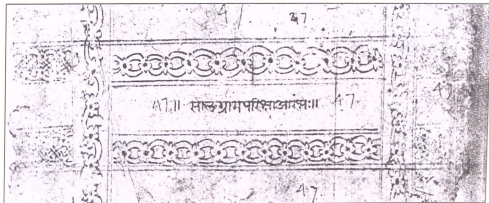 47
47॥ सालग्रामपरिक्षाआरंभः॥ 47
47
47